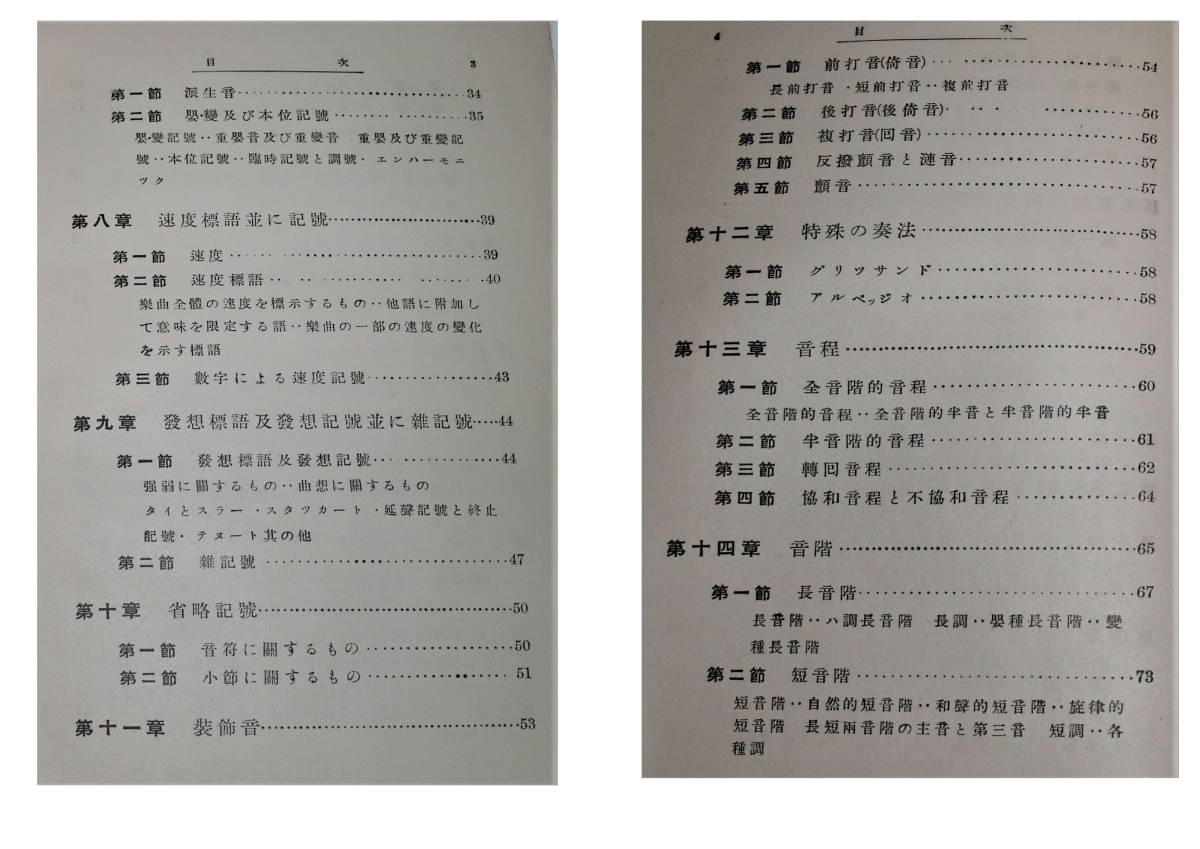 目次 3
第一節 派生音‥‥‥‥‥‥34
第二節 嬰・變及び本位記號‥‥‥‥35
嬰・變記號‥重嬰音及び重變音 重嬰及び重變記
號‥本位記號‥臨時記號と調號・エンハーモニ
ツク
第八章 速度標語並に記號‥‥‥‥39
第一節 速度‥‥‥‥‥‥39
第二節 速度標語‥‥‥‥‥‥40
樂曲全體の速度を標示するもの‥他語に附加し
て意味を限定する語‥樂曲の一部の速度の變化
を示す標語
第三節 數字による速度記號‥‥‥‥43
第九章 發想標語及發想記號並に雜記號‥‥44
第一節 發想標語及發想記號‥‥‥‥44
强弱に關するもの‥曲想に關するもの
タイとスラー・スタツカート・延聲記號と終止
記號・テヌート其の他
第二節 雜記號‥‥‥‥‥‥47
第十章 省略記號‥‥‥‥‥‥50
第一節 音符に關するもの‥‥‥‥50
第二節 小節に關するもの‥‥‥‥51
第十一章 裝飾音‥‥‥‥‥‥53
4 目次
第一節 前打音(倚音)‥‥‥‥‥‥54
長前打音・短前打音‥複前打音
第二節 後打音(後倚音)‥‥‥‥‥‥56
第三節 複打音(回音)‥‥‥‥‥‥56
第四節 反撥顫音と漣音‥‥‥‥‥‥57
第五節 顫音‥‥‥‥‥‥57
第十二章 特殊の奏法‥‥‥‥‥‥58
第一節 グリツサンド‥‥‥‥‥‥58
第二節 アルペッジオ‥‥‥‥‥‥58
第十三章 音程‥‥‥‥‥‥59
第一節 全音階的音程‥‥‥‥‥‥60
全音階的音程‥全音階的半音と半音階的半音
第二節 半音階的音程‥‥‥‥‥‥61
第三節 轉回音程‥‥‥‥‥‥62
第四節 協和音程と不協和音程‥‥‥‥64
第十四章 音階‥‥‥‥‥‥65
第一節 長音階‥‥‥‥‥‥67
長音階‥ハ調長音階 長調‥嬰種長音階‥變
種長音階
第二節 短音階‥‥‥‥‥‥73
短音階‥自然的短音階‥和聲的短音階‥旋律的
短音階 長短兩音階の主音と第三音 短調‥各
種調